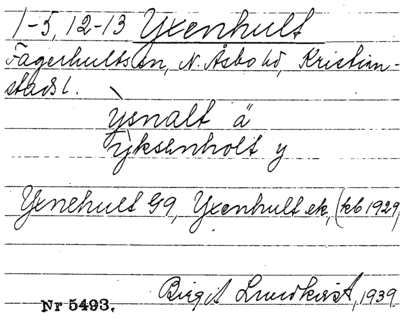 1-5, 12-13 Yxenhult
Fagerhults sn, N. Åsbo hd, Kristian-
stads l.
ỳsnalt ä
ỳksenholt y
Yxnehult G9, Yxenhult ek, (kb 1929)
Birgit Lundkvist, 1939
Nr 5493.